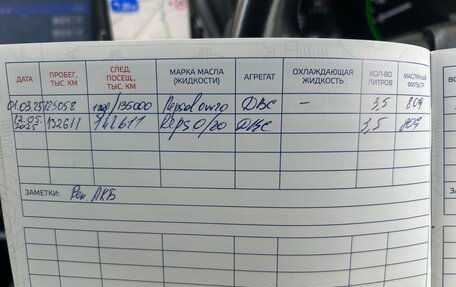 ДАТА ПРОБЕГ, ТЫС. КМ СЛЕД. ПОСЕЩ., ТЫС. КМ МАРКА МАСЛА (ЖИДКОСТИ) АГРЕГАТ ОХЛАЖДАЮЩАЯ ЖИДКОСТЬ КОЛ-ВО ЛИТРОВ МАСЛЯНЫЙ ФИЛЬТР
01.03.25 125058 год/135000 Repsol 0w20 ДВС – 3,5 809
12.05.2025 132611 142611 Reps 0/20 ДВС 3,5 809
ЗАМЕТКИ: Рем. ЛКБ